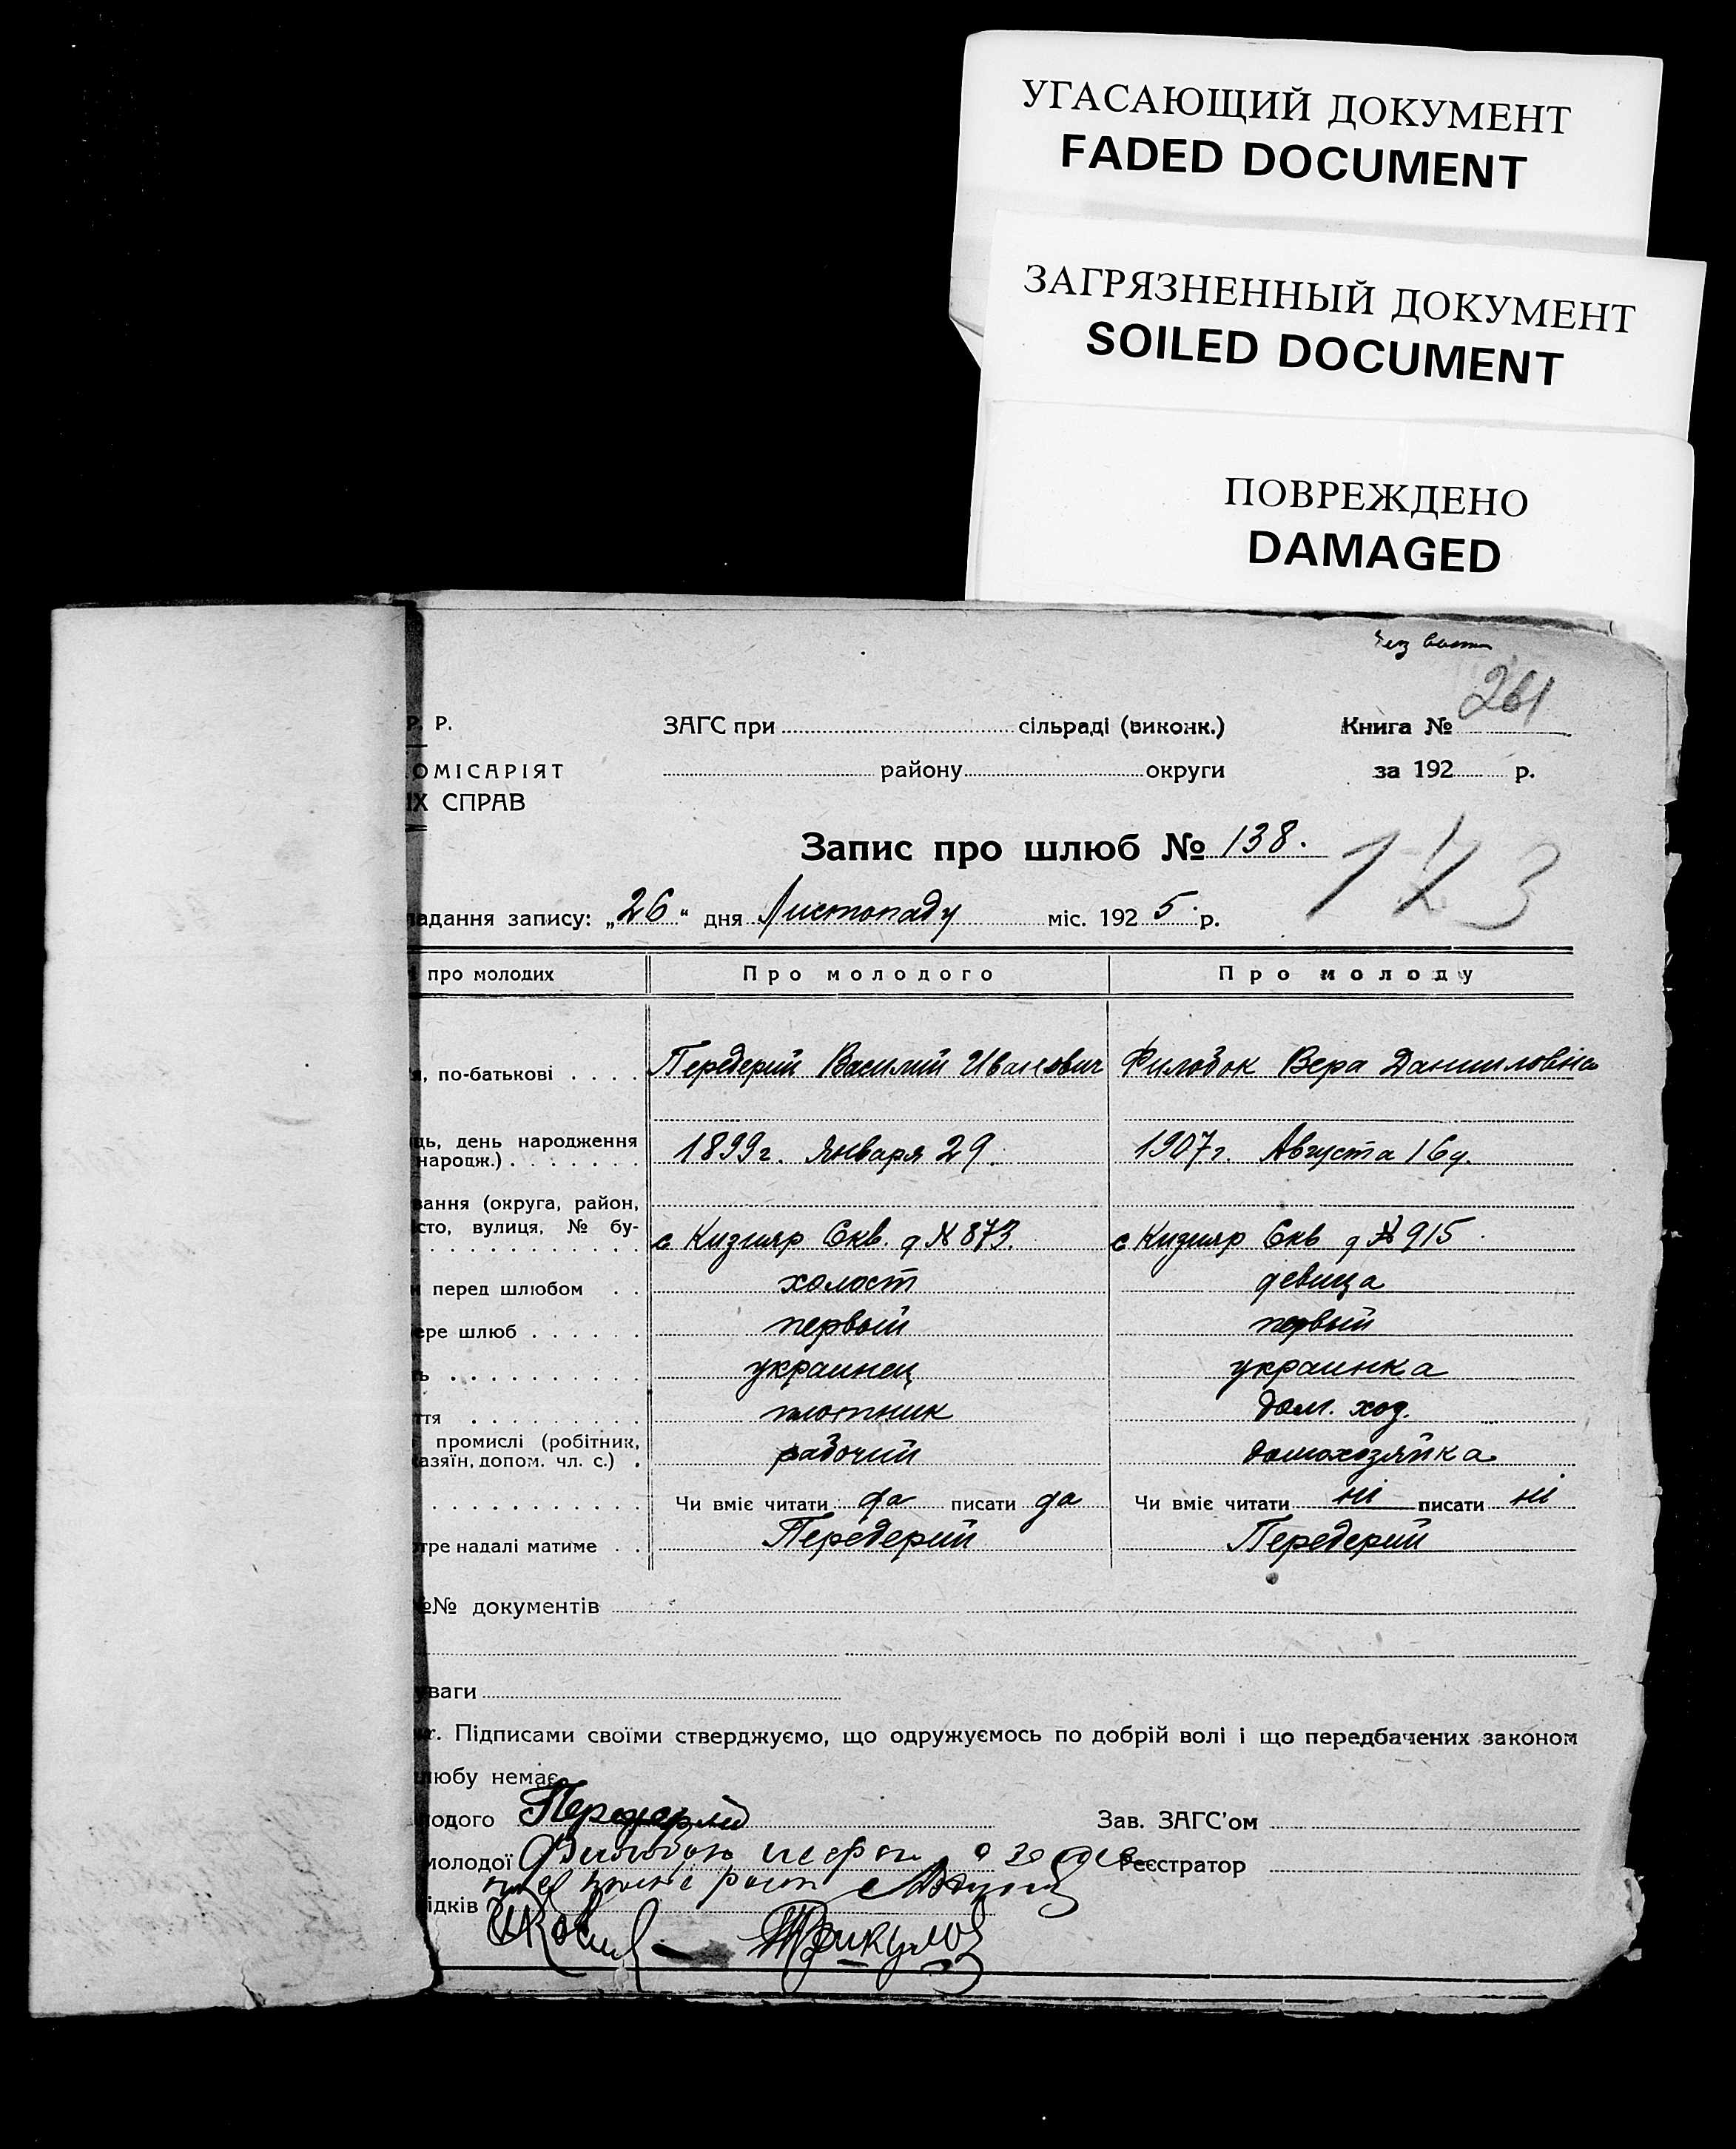 УГАСАЮЩИЙ ДОКУМЕНТ
FADED DOCUMENT
ЗАГРЯЗНЕННЫЙ ДОКУМЕНТ
SOILED DOCUMENT
ПОВРЕЖДЕНО
DAMAGED
261
Р. Р. ЗАГС при сільраді (виконк.) Книга №
ОМІСАРІЯТ району округи за 192 р.
ІХ СПРАВ
Запис про шлюб № 138.
173
адання запису: „26" дня Листопаду міс. 1925 р.
про молодих Про молодого Про молоду
я, по-батькові Передерий Василий Иванович Филобок Вера Данииловна
ць, день народження
народж.) 1899 г. Января 29. 1907 г. Августа 16 д.
вання (округа, район,
сто, вулиця, № бу- с Кизияр Екв. д № 873. с Кизияр Екв д № 915
и перед шлюбом холост девица
ере шлюб первый первый
ь украинец украинка
ття плотник дом. хоз.
промислі (робітник,
азяїн, допом. чл. с.) рабочий домохозяйка
Чи вміє читати да писати да Чи вміє читати ні писати ні
тре надалі матиме Передерий Передерий
№№ документів
уваги
Підписами своїми стверджуємо, що одружуємось по добрій волі і що передбачених законом
любу немає.
лодого Передерий Зав. ЗАГС'ом
молодої Филобок Реєстратор
ідків